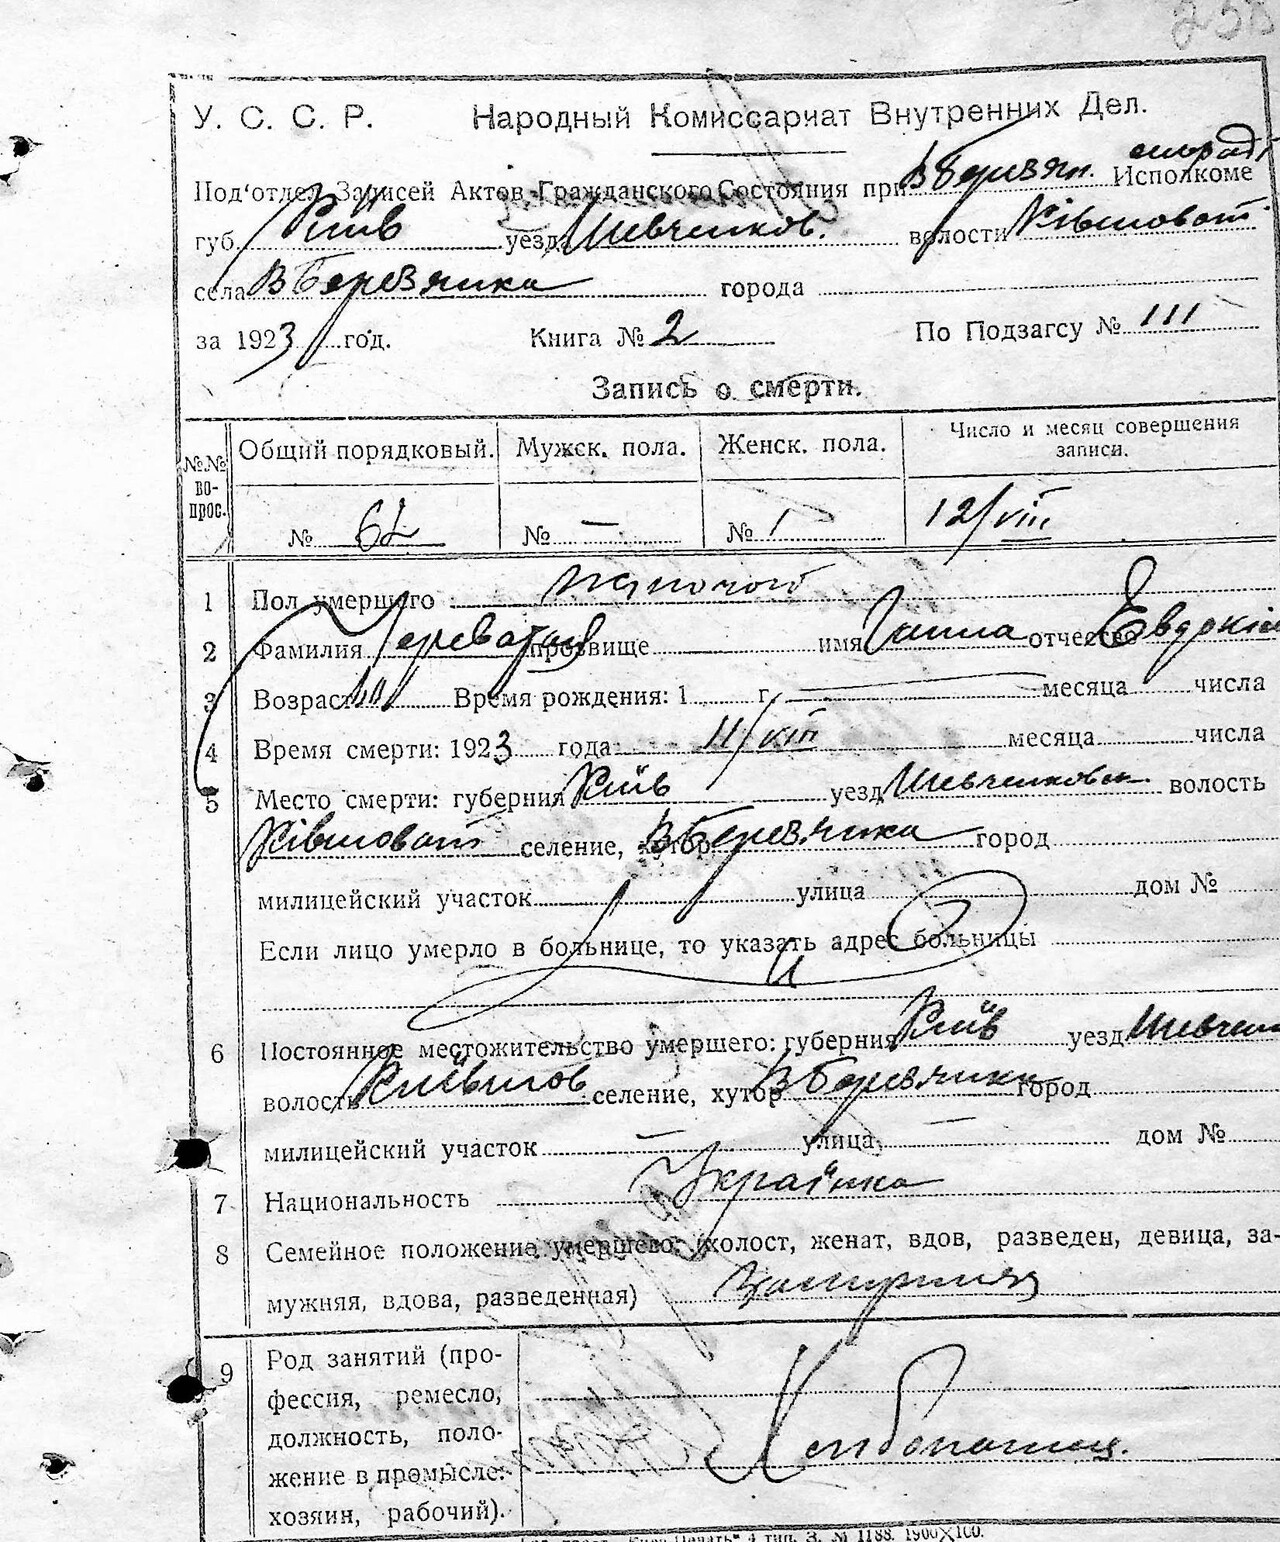 258
У. С. С. Р. Народный Комиссариат Внутренних Дел.
сільраді
Под'отдел Записей Актов Гражданского Состояния при В Березян. Исполкоме
губ. Київ уезда Шевченков. волости Ківшоват.
села В Березянка города
за 1923 год. Книга № 2 По Подзагсу № 111
Запись о смерти.
№№ вопрос. Общий порядковый. Мужск. пола. Женск. пола. Число и месяц совершения записи.
№ 62 № — № 1 12/VIII
1 Пол умершего жіночого
2 Фамилия прозвище имя Ганна отчество Евдокім
3 Возраст Время рождения: 1 г. месяца числа
4 Время смерти: 1923 года 11/VIII месяца числа
5 Место смерти: губерния Київ уезд Шевченковск волость
Ківшоват селение, хутор В Березянка город
милицейский участок улица дом №
Если лицо умерло в больнице, то указать адрес больницы
6 Постоянное местожительство умершего: губерния Київ уезд Шевчен
волость селение, хутор В Березянка город
милицейский участок — улица — дом №
7 Национальность Українка
8 Семейное положение умершего: (холост, женат, вдов, разведен, девица, за-
мужняя, вдова, разведенная) Замужняя
9 Род занятий (про-
фессия, ремесло,
должность, поло-
жение в промысле:
хозяин, рабочий). Хліборобниц.
4 тип. З. № 1188. 1900×100.